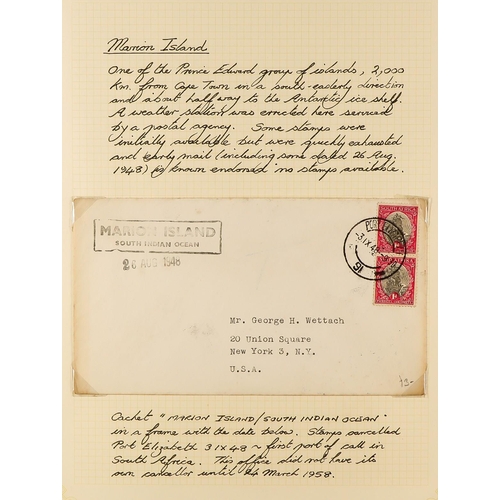 Marion Island
One of the Prince Edward group of islands, 2,000
Km. from Cape Town in a south-easterly direction
and about half way to the Antarctic ice shelf.
A weather station was erected here serviced
by a postal agency. Some stamps were
initially available but were quickly exhausted
and early mail (including some dated 26 Aug.
1948) is known endorsed 'no stamps available.
MARION ISLAND
SOUTH INDIAN OCEAN
26 AUG 1948
PORT ELIZABETH
-3 IX 48
16
SOUTH AFRICA
Mr. George H. Wettach
20 Union Square
New York 3, N.Y.
U.S.A.
Cachet "MARION ISLAND/SOUTH INDIAN OCEAN"
in a frame with the date below. Stamps cancelled
Port Elizabeth 3 IX 48 ~ first port of call in
South Africa. This office did not have its
own canceller until 24 March 1958.